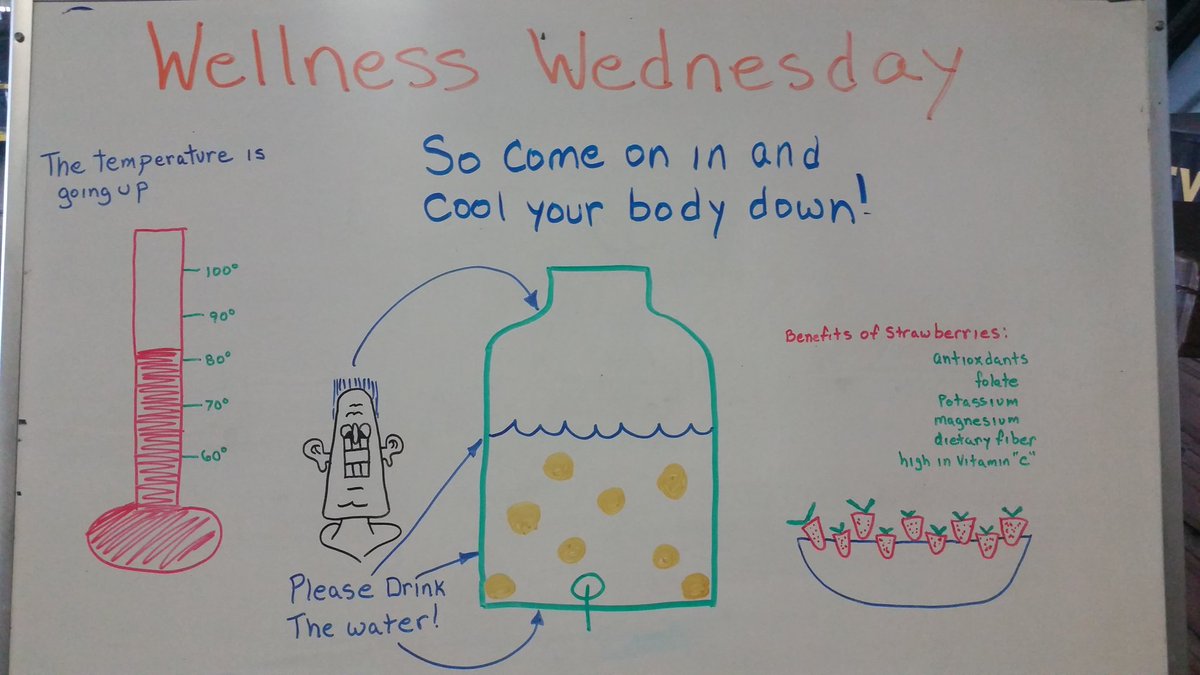 Wellness Wednesday
The temperature is
going up
So Come on in and
Cool your body down!
100°
90°
80°
70°
60°
Please Drink
The water!
Benefits of Strawberries:
antioxdants
folate
Potassium
magnesium
dietary fiber
high in Vitamin "C"